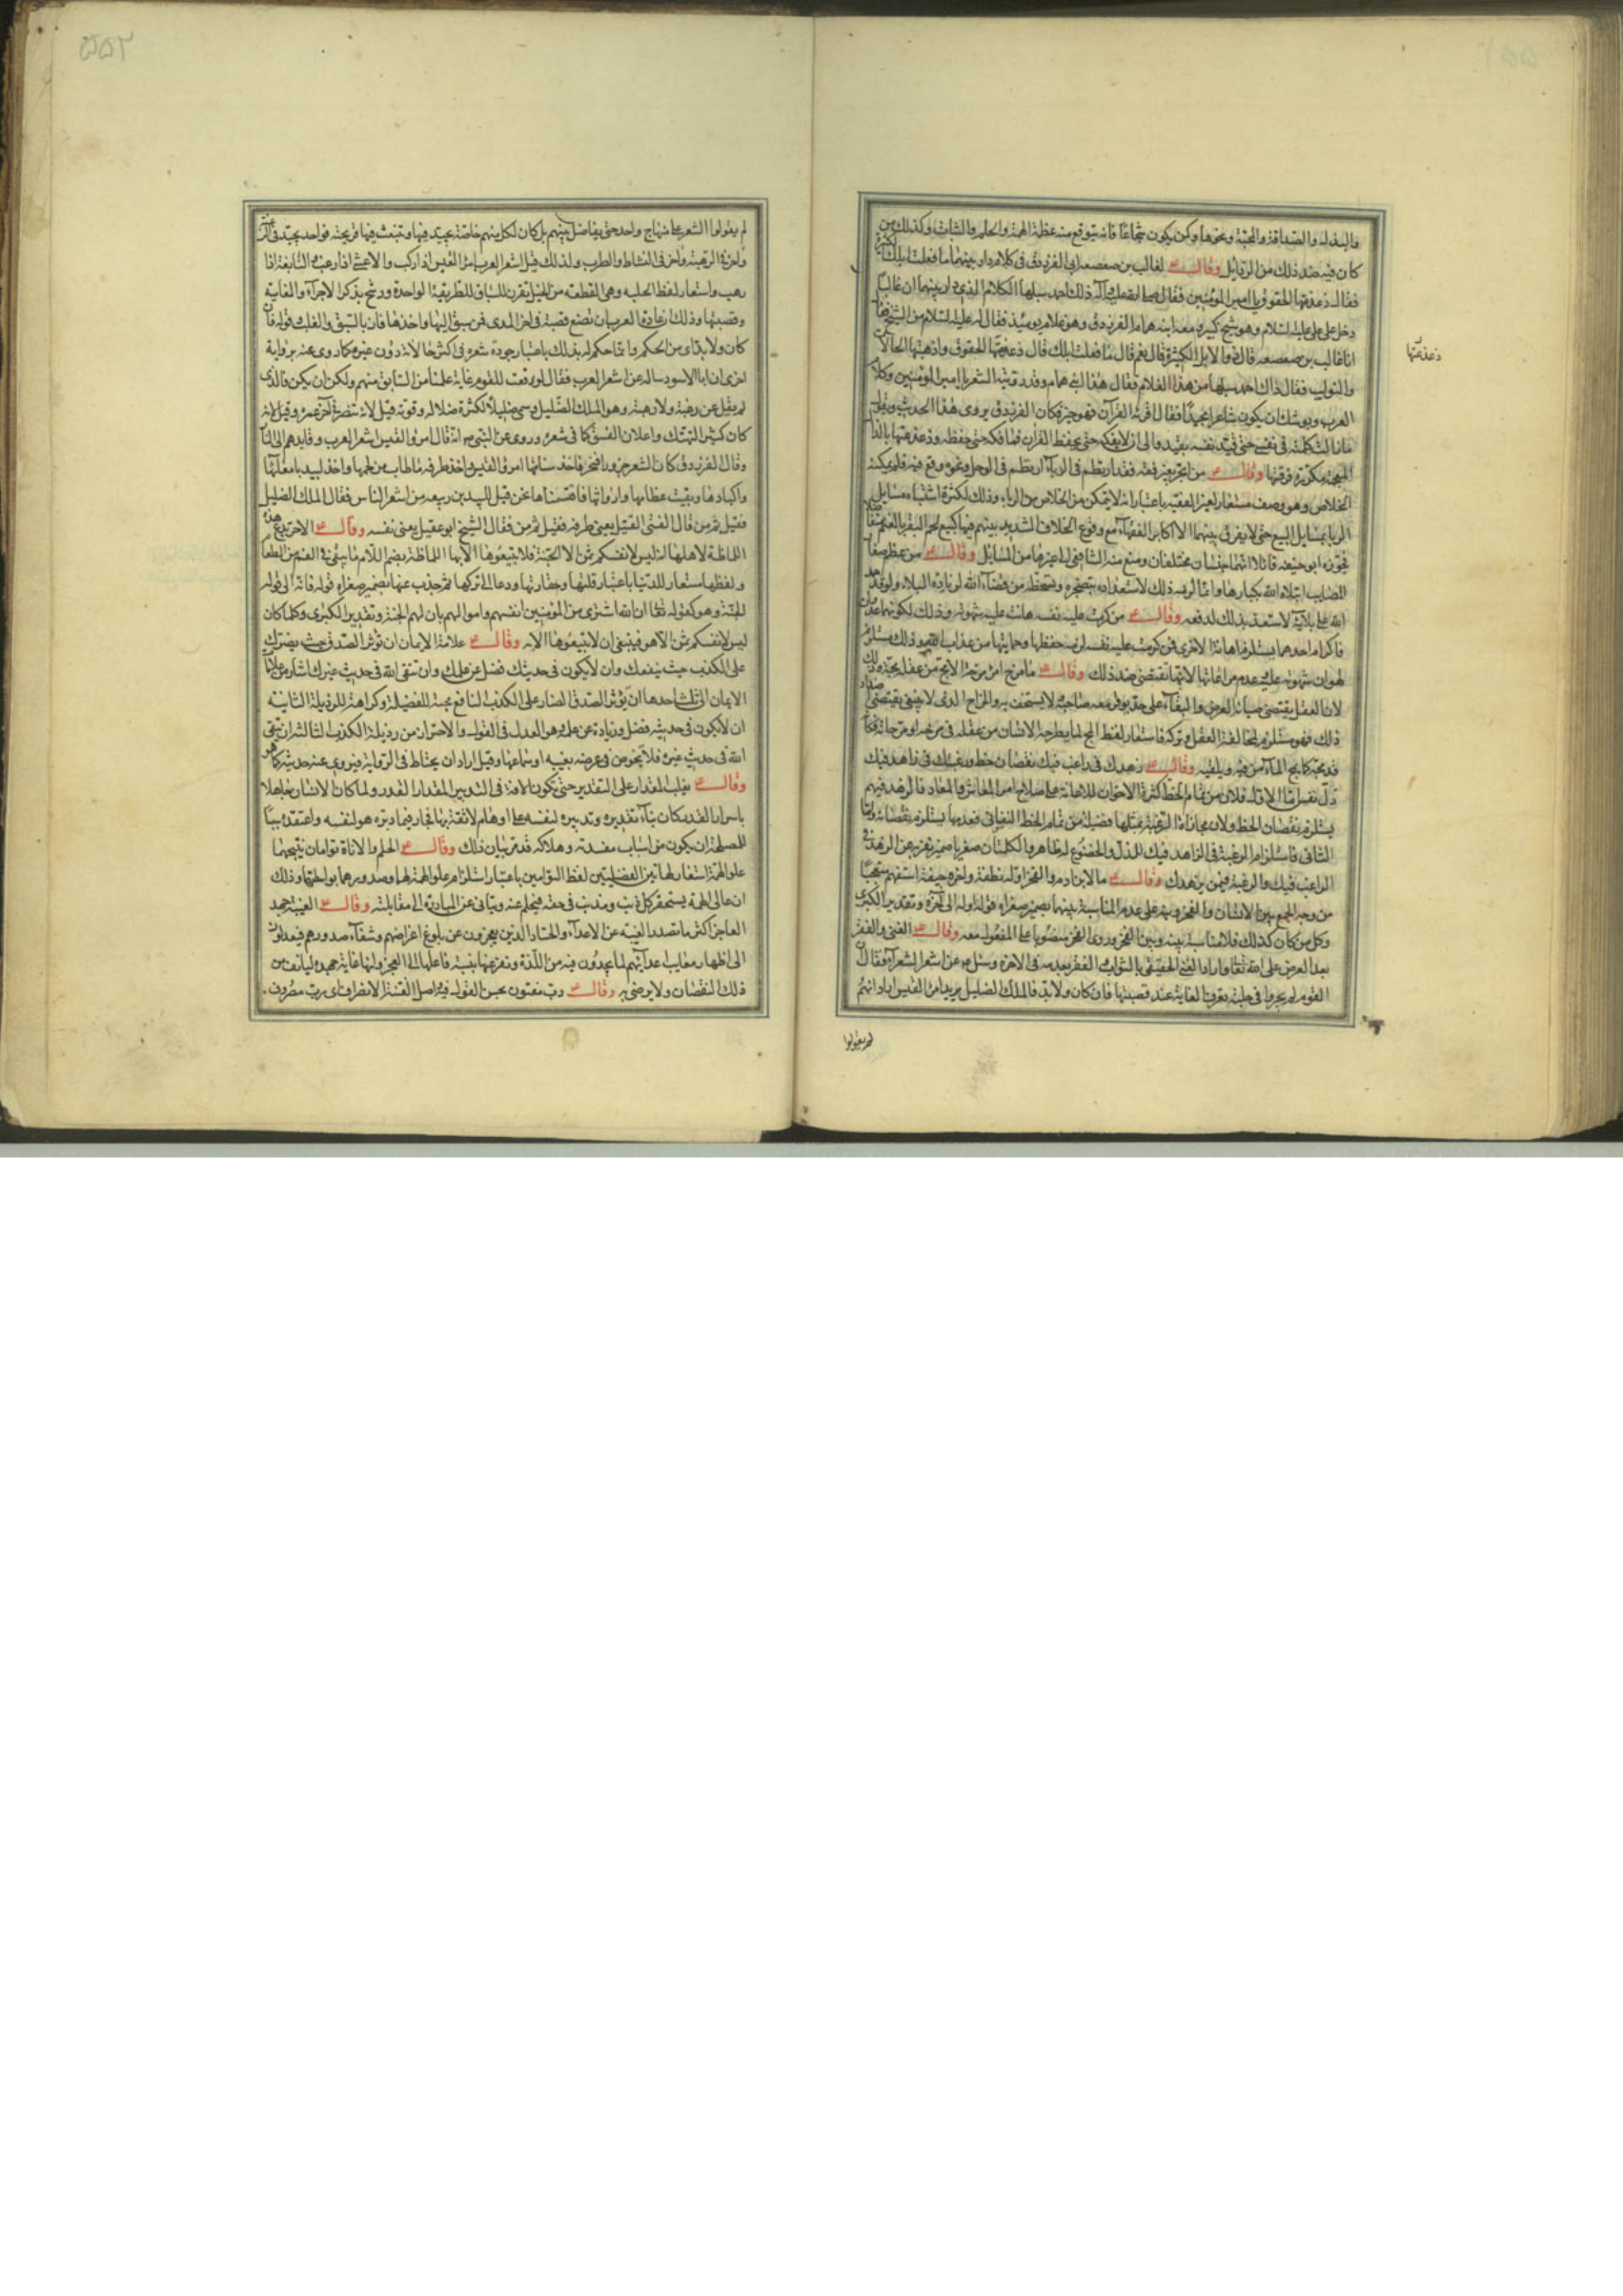 والبذل والصداقة والمحبة ونحوها وكمن يكون شجاعا فانه يتوقع منه عظم الهمة والحلم والثبات وكذلك من
كان فيه ضد ذلك من الرذايل وقال ع لغالب بن صعصعة ابى الفرزدق فى كلام دار بينهما ما فعلت ابلك الكثيرة
فقال ذعذعتها الحقوق يا امير المؤمنين فقال ذلك احمد سبلها الكلام الذى دار بينهما ان غالبا
دخل على على عليه السلام وهو شيخ كبير ومعه ابنه همام الفرزدق وهو غلام يومئذ فقال له عليه السلام من الشيخ فقال
انا غالب بن صعصعة قال ذو الابل الكثيرة قال نعم قال ما فعلت ابلك قال ذعذعتها الحقوق واذهبتها الحمالات
والنوايب فقال ذاك احمد سبلها من هذا الغلام فقال هذا ابنى همام وقد رويته الشعر يا امير المؤمنين وكلام
العرب ويوشك ان يكون شاعرا مجيدا فقال اقرئه القرآن فهو خير فكان الفرزدق يروى هذا الحديث ويقول
ما زالت كلمته فى نفسى حتى قيد نفسه بقيد والى ان لا يفكه حتى يحفظ القران فما فكه حتى حفظه وذعذعتها بالذال
المعجمة مكررة فرقتها وقال ع من اتجر بغير فقه فقد ارتطم فى الربا ارتطم فى الوحل ونحوه وقع فيه فلم يمكنه
الخلاص وهو وصف مستعار لغير الفقيه باعتبار انه لا يتمكن من الخلاص من الربا وذلك لكثرة اشتباه مسايل
الربا بمسايل البيع حتى لا يفرق بينهما الا اكابر الفقهاء مع وقوع الخلاف الشديد بينهم فيها كبيع لحم البقر بالغنم متفاضلا
فجوزه ابو حنيفة قائلا انهما جنسان مختلفان ومنع منه الشافعى الى غيرها من المسايل وقال ع من عظم صغار
المصايب ابتلاه الله بكبارها وانما لزمه ذلك لاستعداده بتضجره وتسخطه من قضاء الله لزيادة البلاء ولو حمد
الله على بلائه لاستعد بذلك لدفعه وقال ع من كرمت عليه نفسه هانت عليه شهوته وذلك لكونهما
فاكرام احدهما يستلزم اهانة الاخرى فمن كرمت عليه نفسه لزمه حفظها وحمايتها من عذاب الله وذلك مستلزم
لهوان شهوته عليه وعدم مراعاتها لانها تقتضى ضد ذلك وقال ع ما مزح امرؤ مزحة الا مج من عقله مجة وذلك
لان العقل يقتضى صيانة العرض والبقاء على حد يوقر معه صاحبه ولا يستخف به والمزاح الذى لا ينبغى يقتضى ضد
ذلك فهو مستلزم لمخالفة العقل وتركه فاستعار لفظ المج لما يطرحه الانسان من عقله فى مزحه او مزحاته فكانه
قد مجه كما يمج الماء من فيه ويلقيه وقال ع زهدك فى راغب فيك نقصان حظ ورغبتك فى زاهد فيك
ذل نفس اما الاول فلان من تمام الحظ كثرة الاخوان للاعانة على صلاح امر المعاش والمعاد فالزهد فيهم
يستلزم نقصان الحظ ولان مجازاة الرغبة بمثلها فضيلة من تمام الحظ النفسانى فعدمها يستلزم نقصانه واما
الثانى فاستلزام الرغبة فى الزاهد فيك للذل والخضوع له ظاهر والكلمتان صغريا ضمير نفر به عن الزهد فى
الراغب فيك والرغبة فيمن يزهدك وقال ع ما لابن ادم والفخر اوله نطفة واخره جيفة استفهم تعجبا
من وجه الجمع بين الانسان والفخر ونبه على عدم المناسبة بينهما بضمير صغراه قوله اوله الى آخره وتقدير الكبرى
وكل من كان كذلك فلا مناسبة بينه وبين الفخر وروى الفخر منصوبا على المفعول معه وقال ع الغنى والفقر
بعد العرض على الله تعالى واراد الغنى الحقيقى بالثواب والفقر بعدمه فى الاخرة وسئل ع عن اشعر الشعراء فقال
القوم لم يجروا فى حلبة تعرف الغاية عند قصبتها فان كان ولا بد فالملك الضليل يريد امرؤ القيس اراد انهم
لم يقولوا
ذعذعتها
لم يقولوا الشعر على منهاج واحد حتى يفاضل بينهم بل كان لكل منهم خاصة يجيد فيها وتنبعث فيها قريحته فواحد يجيد فى
واخر فى الرهبة واخر فى النشاط والطرب ولذلك قيل اشعر العرب امرؤ القيس اذا ركب والاعشى اذا رغب والنابغة اذا
رهب واستعار لفظ الحلبة وهى القطعة من الخيل يقرن للسباق للطريقة الواحدة ورشح بذكر الاجراء والغاية
وقصبتها وذلك ان عادة العرب ان تضع قصبة فى اخر المدى فمن سبق اليها واخذها فاز بالسبق والغلب قوله فان
كان ولا بد اى من الحكم وانما حكم له بذلك باعتبار جودة شعره فى اكثر حالاته دون غيره كما روى عنه برواية
اخرى ان ابا الاسود ساله عن اشعر العرب فقال لو رفعت للقوم غاية علمنا من السابق منهم ولكن ان يكن فالذى
لم يقل عن رغبة ولا رهبة وهو الملك الضليل وسمى ضليلا لكثرة ضلاله وقوته قيل لانه تنصر فى آخر عمره وقيل لانه
كان كثير التهتك واعلان الفسق كما فى شعره وروى عن النبى ص انه قال امرؤ القيس اشعر العرب وقايدهم الى النار
وقال الفرزدق كان الشعر جزورا فنحر فاخذ سنامها امرؤ القيس واخذ طرفه ما طاب من لحمها واخذ لبيد بامعائها
واكبادها وبقيت عظامها وارواثها فاقتسمناها نحن قيل للبيد بن ربيعه من اشعر الناس فقال الملك الضليل
فقيل ثم من قال الفتى القتيل يعنى طرفه فقيل ثم من فقال الشيخ ابو عقيل يعنى نفسه وقال ع الا حر يدع هذه
اللماظة لاهلها انه ليس لانفسكم ثمن الا الجنة فلا تبيعوها الا بها اللماظة بضم اللام ما يبقى فى الفم من الطعام
ولفظها مستعار للدنيا باعتبار قلتها وحقارتها ودعا الى تركها ثم جذب عنها بضمير صغراه قوله فانه الى قوله
الجنة وهو كقوله تعالى ان الله اشترى من المؤمنين انفسهم واموالهم بان لهم الجنة وتقدير الكبرى وكلما كان
ليس لانفسكم ثمن الا هو فينبغى ان لا تبيعوها الا به وقال ع علامة الايمان ان تؤثر الصدق حيث يضرك
على الكذب حيث ينفعك وان لا يكون فى حديثك فضل عن علمك وان تتقى الله فى حديث غيرك اشار من علامات
الايمان الى ثلث احدها ان يؤثر الصدق الضار على الكذب النافع محبة للفضيلة وكراهة للرذيلة الثانية
ان لا يكون فى حديثه فضل وزيادة عن علمه وهو العدل فى القول والاحتراز من رذيلة الكذب الثالثة ان يتقى
الله فى حديث غيره فلا يخوض فى عرضه بغيبه او سماعها وقيل اراد ان يحتاط فى الرواية فيروى عنه حديثه كما هو
وقال ع يغلب المقدار على التقدير حتى تكون الافة فى التدبير المقدار القدر ولما كان الانسان جاهلا
باسرار القدر كان بناء تقديره وتدبيره لنفسه على اوهام لا ثقة بها فجاز فيما دبره هو لنفسه واعتقده سببا
للمصلحة ان يكون من اسباب مفسدته وهلاكه قد مر بيان ذلك وقال ع الحلم والاناة توامان ينتجهما
علو الهمة استعار لهاتين الفضيلتين لفظ التوامين باعتبار استلزام علو الهمة لهما وصدورهما بواسطتها وذلك
ان عالى الهمة يستحقر كل ذنب ومذنب فى حقه فيحلم عنه ويتانى عن المبادرة الى مقابلته وقال ع الغيبة جهد
العاجز اكثر ما تصدر الغيبة عن الاعداء والحساد الذين يعجزون عن بلوغ اغراضهم وشفاء صدورهم فيعدلون
الى اظهار معايب اعدائهم لما يجدون فيه من اللذة ونفر عنها بنسبة فاعلها الى العجز وانها غاية جهده ليانف من
ذلك النقصان ولا يرضى به وقال ع رب مفتون بحسن القول فيه اصل الفتنة الانصراف اى رب مصروف